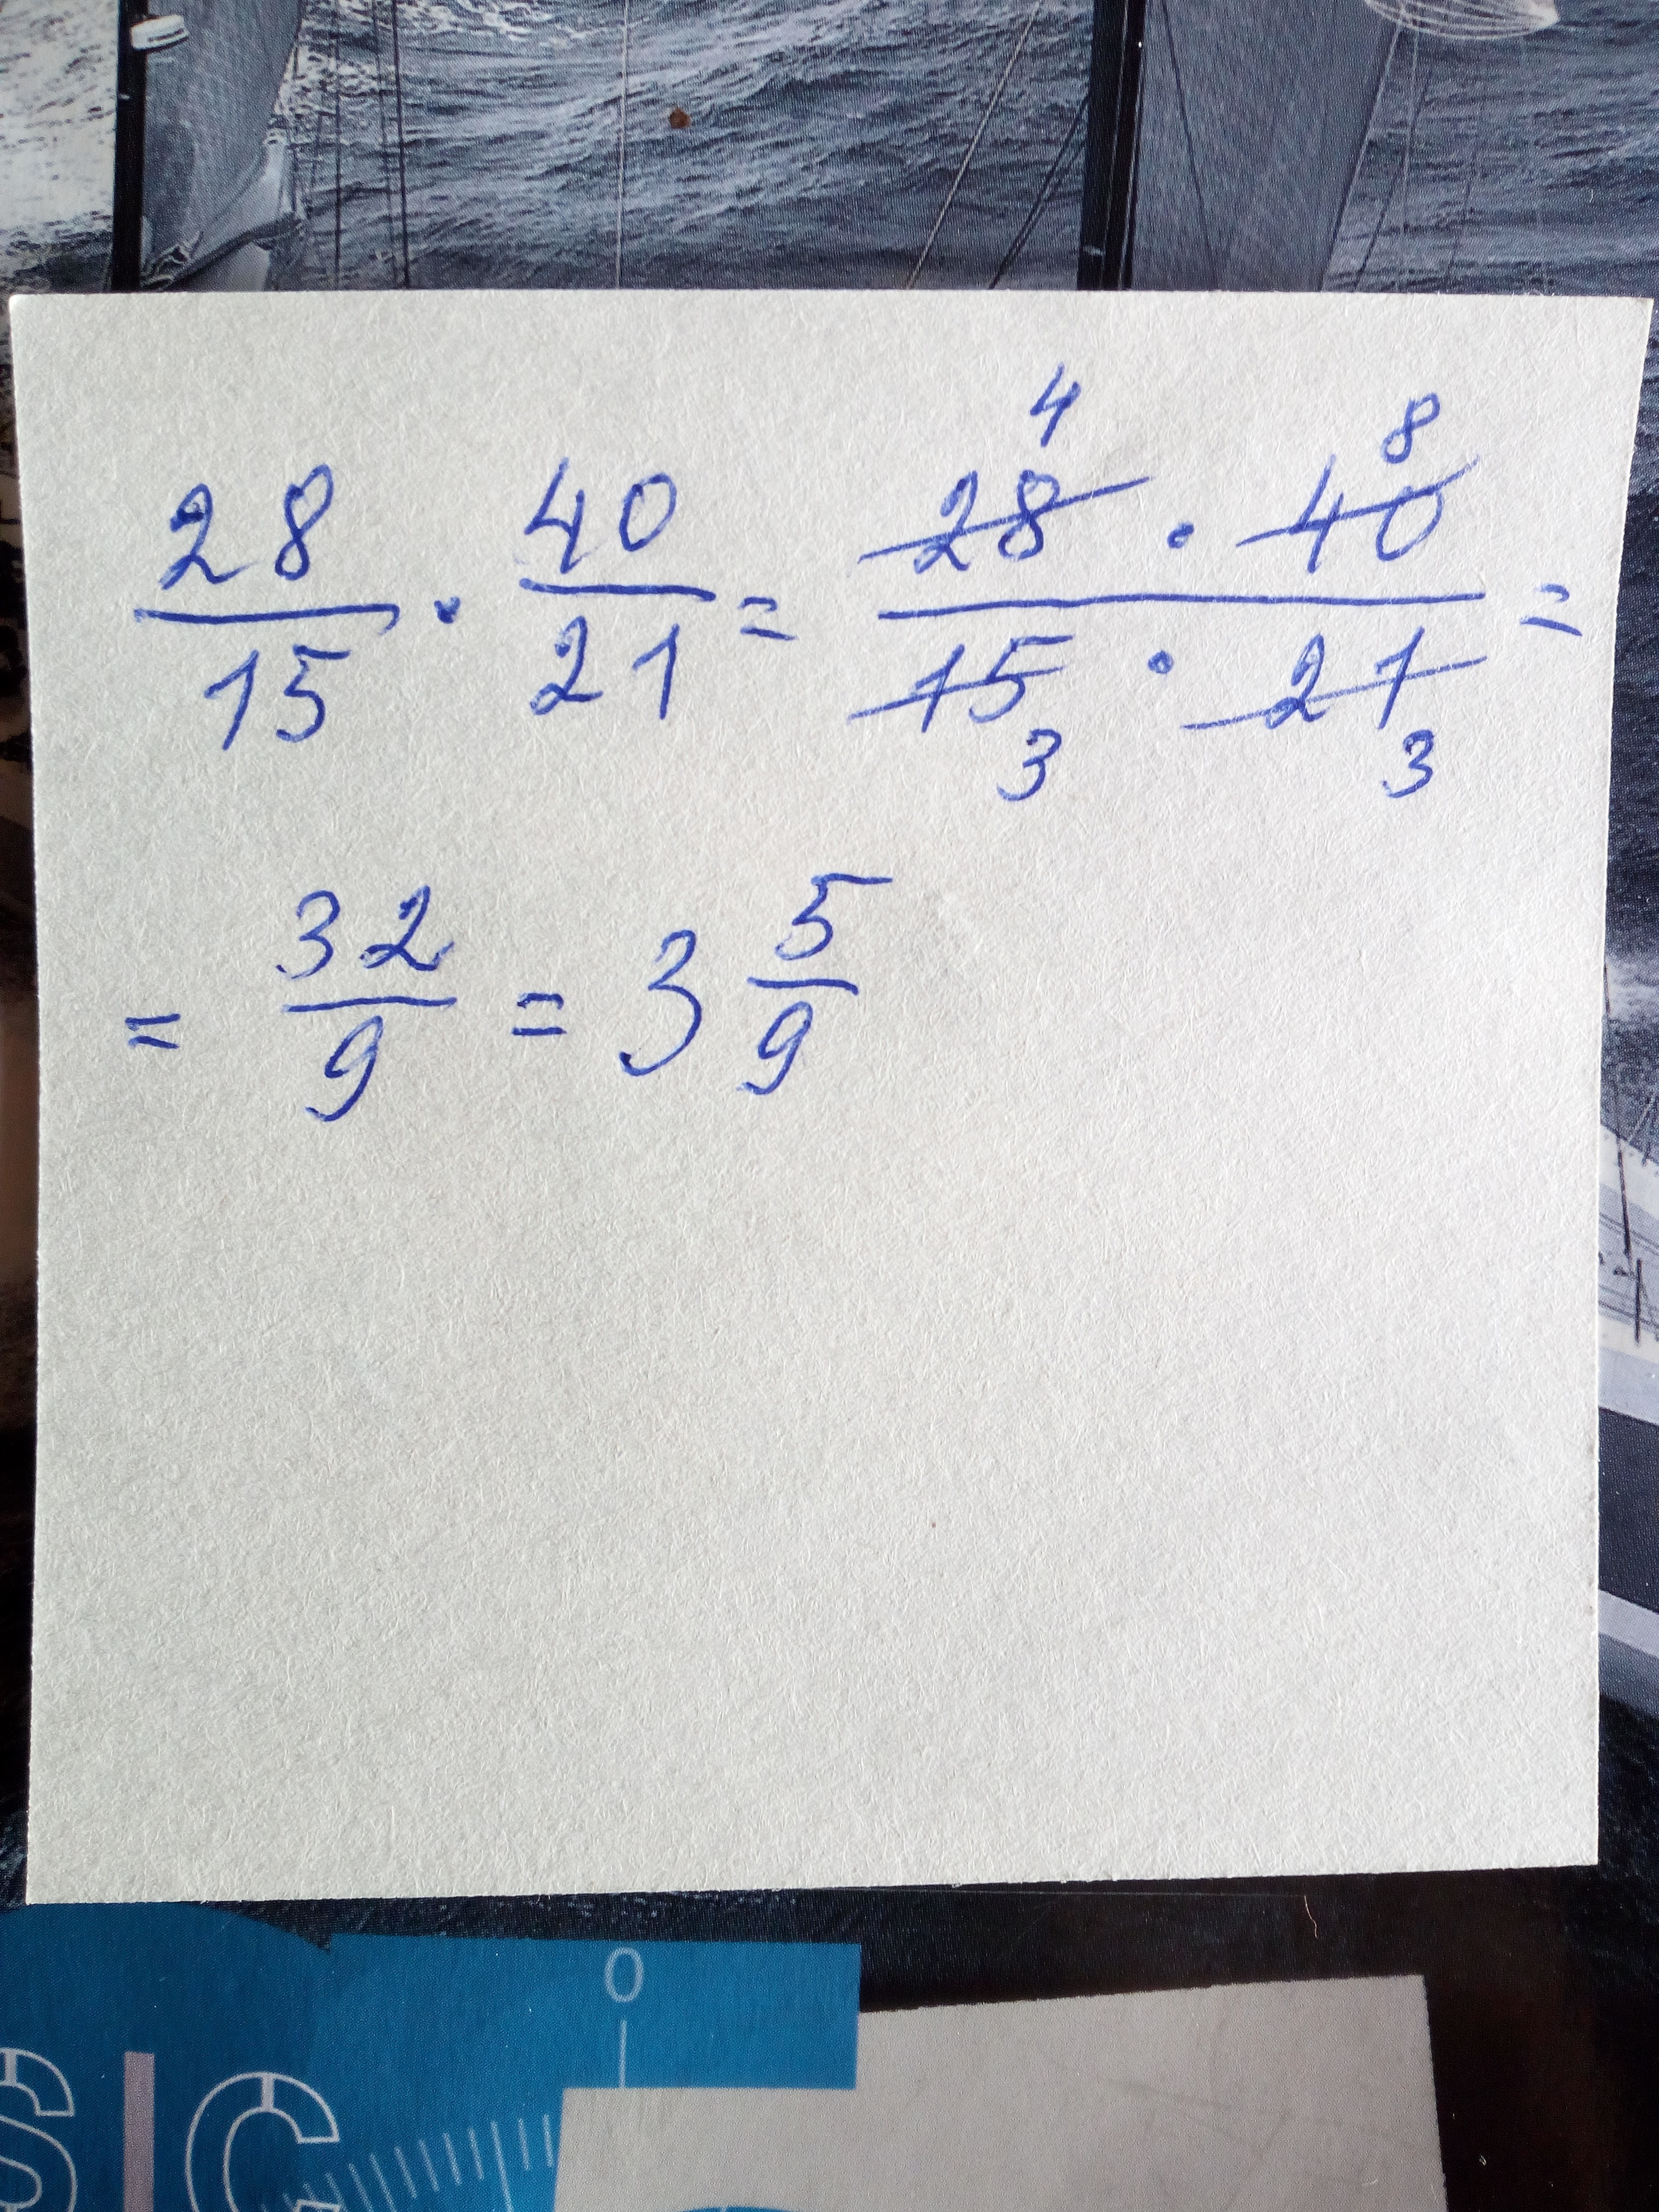 28/15 · 40/21 = 28 4 · 40 8 / 15 3 · 21 3 =
= 32/9 = 3 5/9
0
SIC